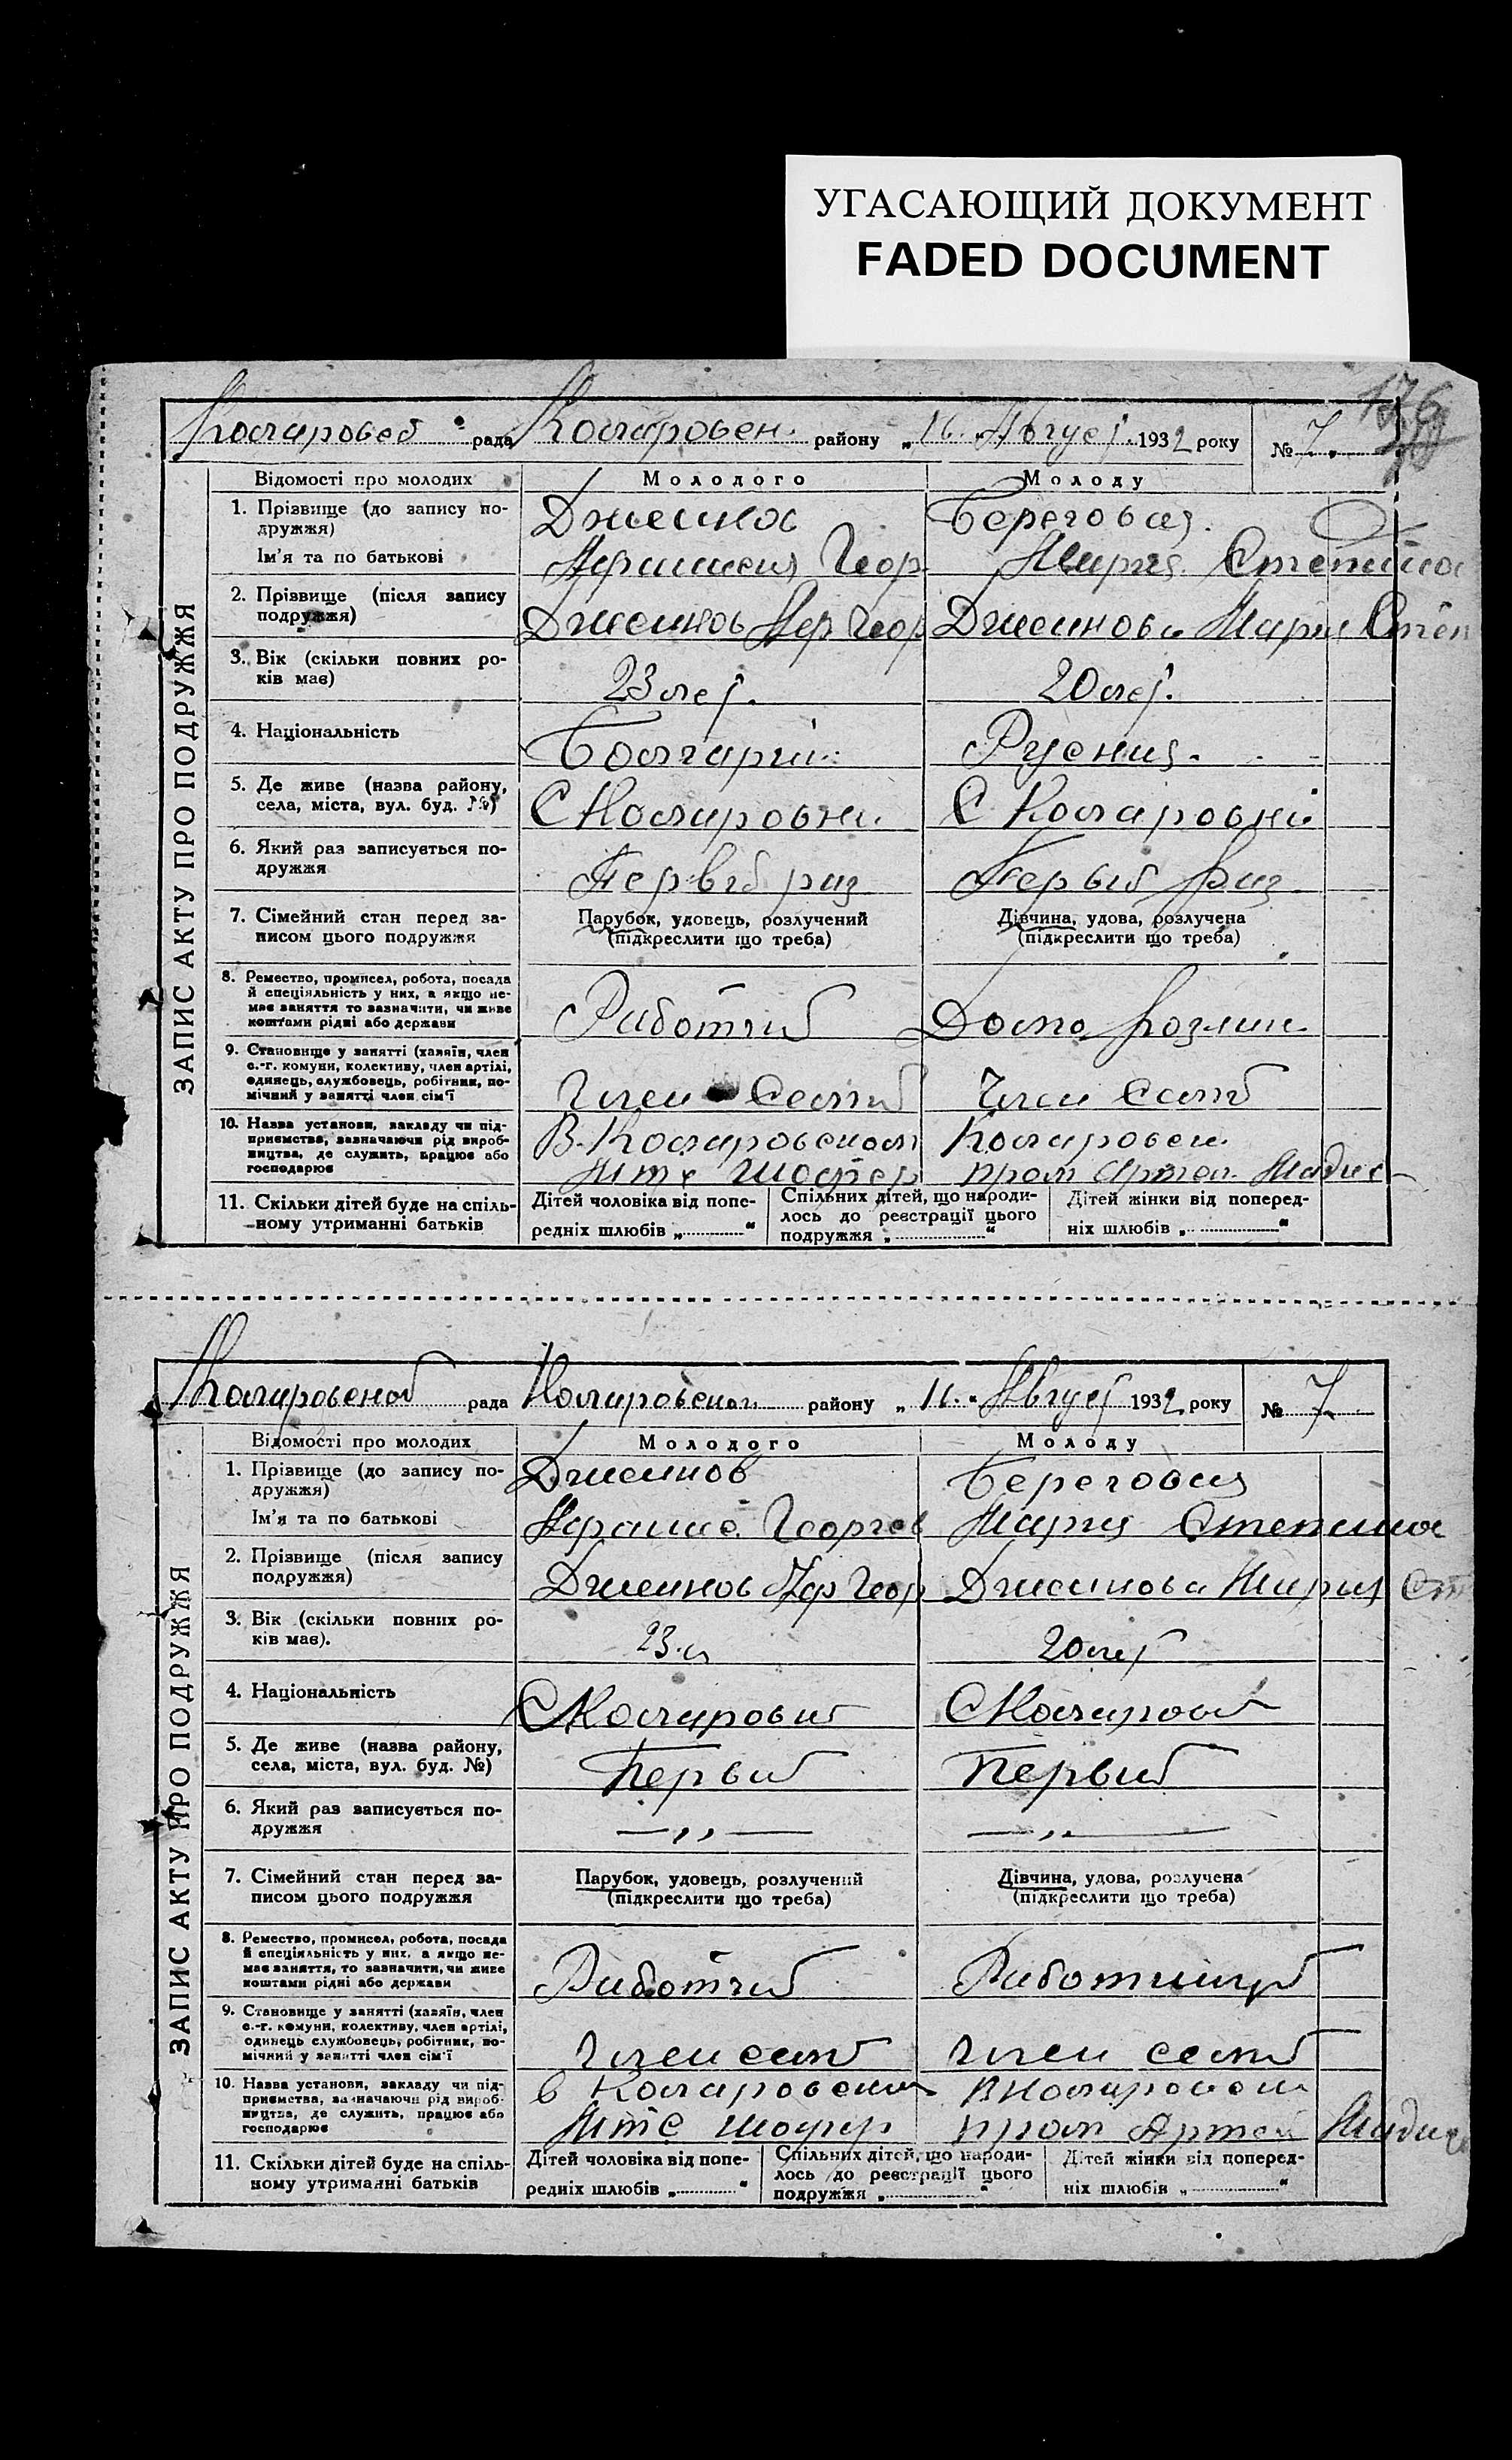 УГАСАЮЩИЙ ДОКУМЕНТ
FADED DOCUMENT
176
рада Коларовск. району „16" Август 1932 року № 7
ЗАПИС АКТУ ПРО ПОДРУЖЖЯ
Відомості про молодих Молодого Молоду
1. Прізвище (до запису по-
дружжя) Береговая.
Ім'я та по батькові Геор Мария
2. Прізвище (після запису
подружжя) Геор Мария Степ
3. Вік (скільки повних ро-
ків має) 23 лет. 20 лет.
4. Національність Болгарин
5. Де живе (назва району,
села, міста, вул. буд. №) С Коларовка С Коларовка
6. Який раз записується по-
дружжя Первый раз Первый раз
7. Сімейний стан перед за- Парубок, удовець, розлучений Дівчина, удова, розлучена
писом цього подружжя (підкреслити що треба) (підкреслити що треба)
8. Ремество, промисел, робота, посада
й спеціяльність у них, а якщо не-
має заняття то зазначити, чи живе
коштами рідні або держави Работчий Домо
9. Становище у занятті (хазяїн, член
с.-г. комуни, колективу, член артілі,
одинець, службовець, робітник, по-
мічний у занятті член сім'ї Член Семй Член Семй
10. Назва установи, закладу чи під-
приємства, зазначаючи рід вироб- В. Коларовском Коларовск
ництва, де служить, працює або
господарює Мтс шофер пром Артел
11. Скільки дітей буде на спіль- Дітей чоловіка від попе- Спільних дітей, що народи- Дітей жінки від поперед-
ному утриманні батьків редніх шлюбів „ " лось до реєстрації цього ніх шлюбів „ "
подружжя „ "
рада району „16" Август 1932 року № 7
ЗАПИС АКТУ ПРО ПОДРУЖЖЯ
Відомості про молодих Молодого Молоду
1. Прізвище (до запису по-
дружжя) Береговая
Ім'я та по батькові Георгев Мария
2. Прізвище (після запису
подружжя) Геор Мария Ст
3. Вік (скільки повних ро-
ків має). 23 л 20 лет
4. Національність
5. Де живе (назва району,
села, міста, вул. буд. №) Первий Первий
6. Який раз записується по-
дружжя —„— —„—
7. Сімейний стан перед за- Парубок, удовець, розлучений Дівчина, удова, розлучена
писом цього подружжя (підкреслити що треба) (підкреслити що треба)
8. Ремество, промисел, робота, посада
й спеціяльність у них, а якщо не-
має заняття, то зазначити, чи живе
коштами рідні або держави Работчий
9. Становище у занятті (хазяїн, член
с.-г. комуни, колективу, член артілі,
одинець службовець, робітник, по-
мічний у занятті член сім'ї Член семй Член семй
10. Назва установи, закладу чи під-
приємства, зазначаючи рід вироб- в Коларовском
ництва, де служить, працює або
господарює Мтс шофер пром Артел
11. Скільки дітей буде на спіль- Дітей чоловіка від попе- Спільних дітей, що народи- Дітей жінки від поперед-
ному утриманні батьків редніх шлюбів „ " лось до реєстрації цього ніх шлюбів „ "
подружжя „ "